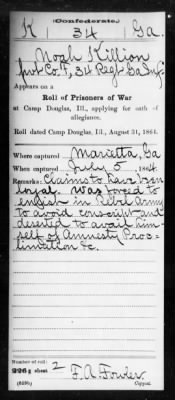 (Confederate.)
K 34 Ga.
Noah Killion
Pvt Co. F, 34 Regt Ga Inf.
Appears on a
Roll of Prisoners of War
at Camp Douglas, Ill., applying for oath of
allegiance.
Roll dated Camp Douglas, Ill., August 31, 1864.
Where captured Marietta, Ga
When captured July 5, 1864
Remarks: Claims to have been
loyal. Was forced to
enlist in Rebel Army
to avoid conscript and
deserted to avail him-
self of Amnesty Proc-
limation &c.
Number of roll:
226 sheet 2 F. A. Fowler
(639b) Copyist.